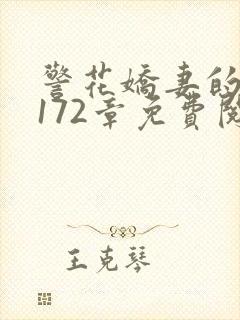 警花嬌妻的
172章免費閱
王克琴